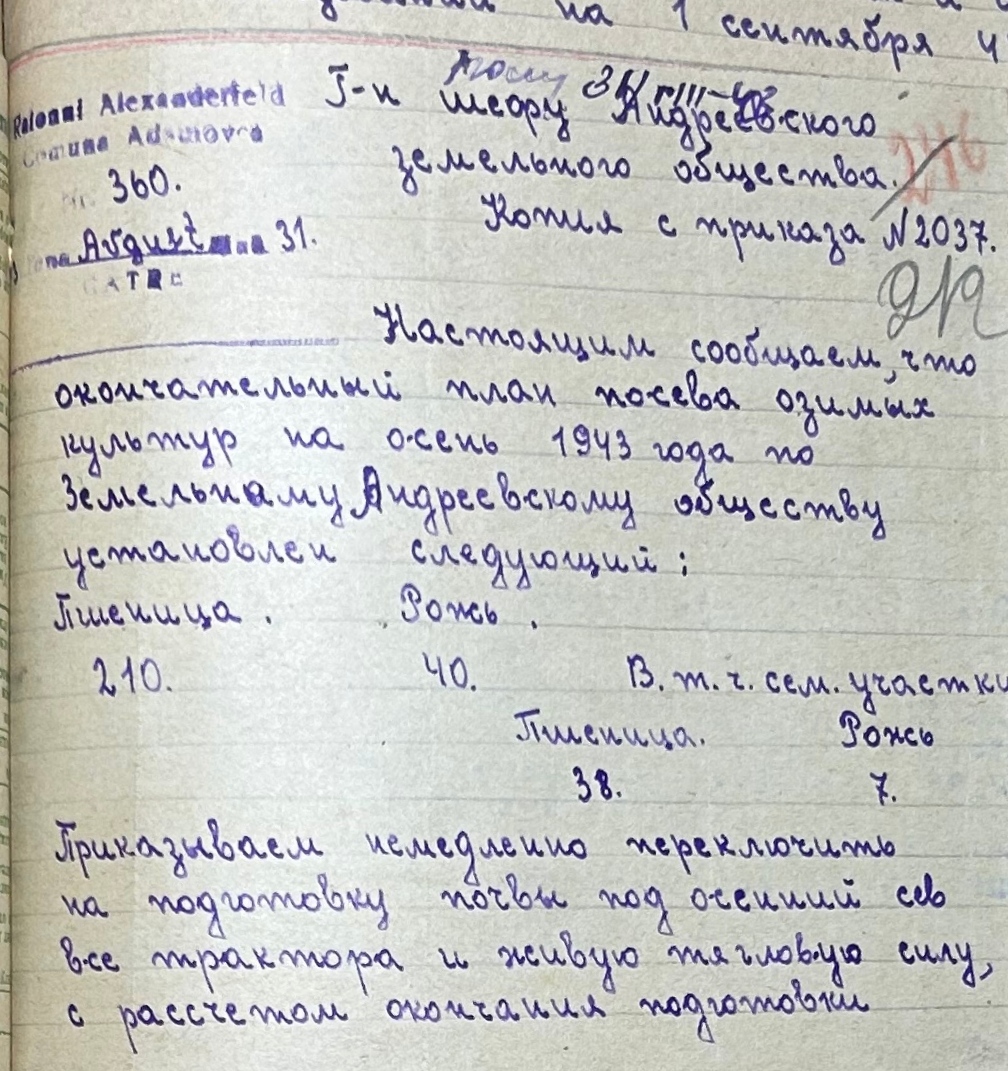 на 1 сентября
31/VIII-43
Raionul Alexanderfeld
Comuna Adamovca
Nr. 360.
Avgust 31.
Г-н шефу Андреевского
земельного общества.
246
Копия с приказа №2037.
Настоящим сообщаем, что
окончательный план посева озимых
культур на осень 1943 года по
Земельнаму Андреевскому обществу
установлен следующий:
Пшеница. Рожь.
210. 40. В. т. ч. сем. участки
Пшеница. Рожь
38. 7.
Приказываем немедленно переключить
на подготовку почвы под осенний сев
все трактора и живую тягловую силу,
с рассчетом окончания подготовки